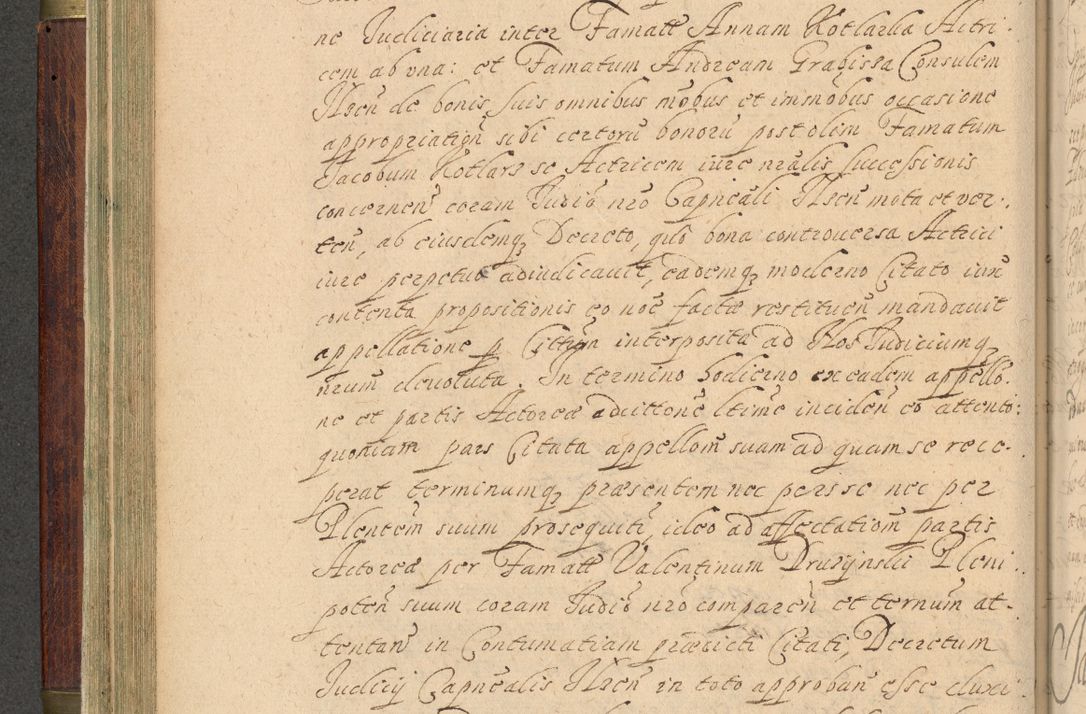 ne Judiciaria inter Famatã Annam Kotlarka Actri-
cem ab vna: et Famatum Andream Grabissa Consulem
Ilsen̄ de bonis suis omnibus mōbus et immōbus occasione
appropriation̄ sibi certorū bonorū post olim Famatum
Jacobum Kotlarz se Actricem iure nr̄alis successionis
concernen̄ coram Judiō nrō Capnēali Ilsen̄ mota et ver-
ten̄, ab eiusdemq₃ Decreto, quō bona controuersa Actrici
iure perpetuo adiudicauit, eademq₃ moderno Citato iux̄
contenta propositionis eo noē factæ restituen̄ mandauit
appellatione p Cittūm interposita ad Nos Judiciumq₃
nrūm deuoluta. In termino hodierno ex eadem appellō-
ne et partis Actoreæ adcittonē ltimē inciden̄ eo attento:
quoniam pars Citata appellom̄ suam ad quam se rece-
perat terminumq₃ præsentem nec per se nec per
Plentēm suum prosequitr̄, ideo ad affectatiom̄ partis
Actoreæ per Famatū Valentinum Drurynski Pleni-
poten̄ suum coram Judiō nrō comparen̄ et ternum at-
tentan̄ in Contumatiam prædicti Citati, Decretum
Judicij Capnēalis Ilsen̄ in toto approban̄ esse duxi-